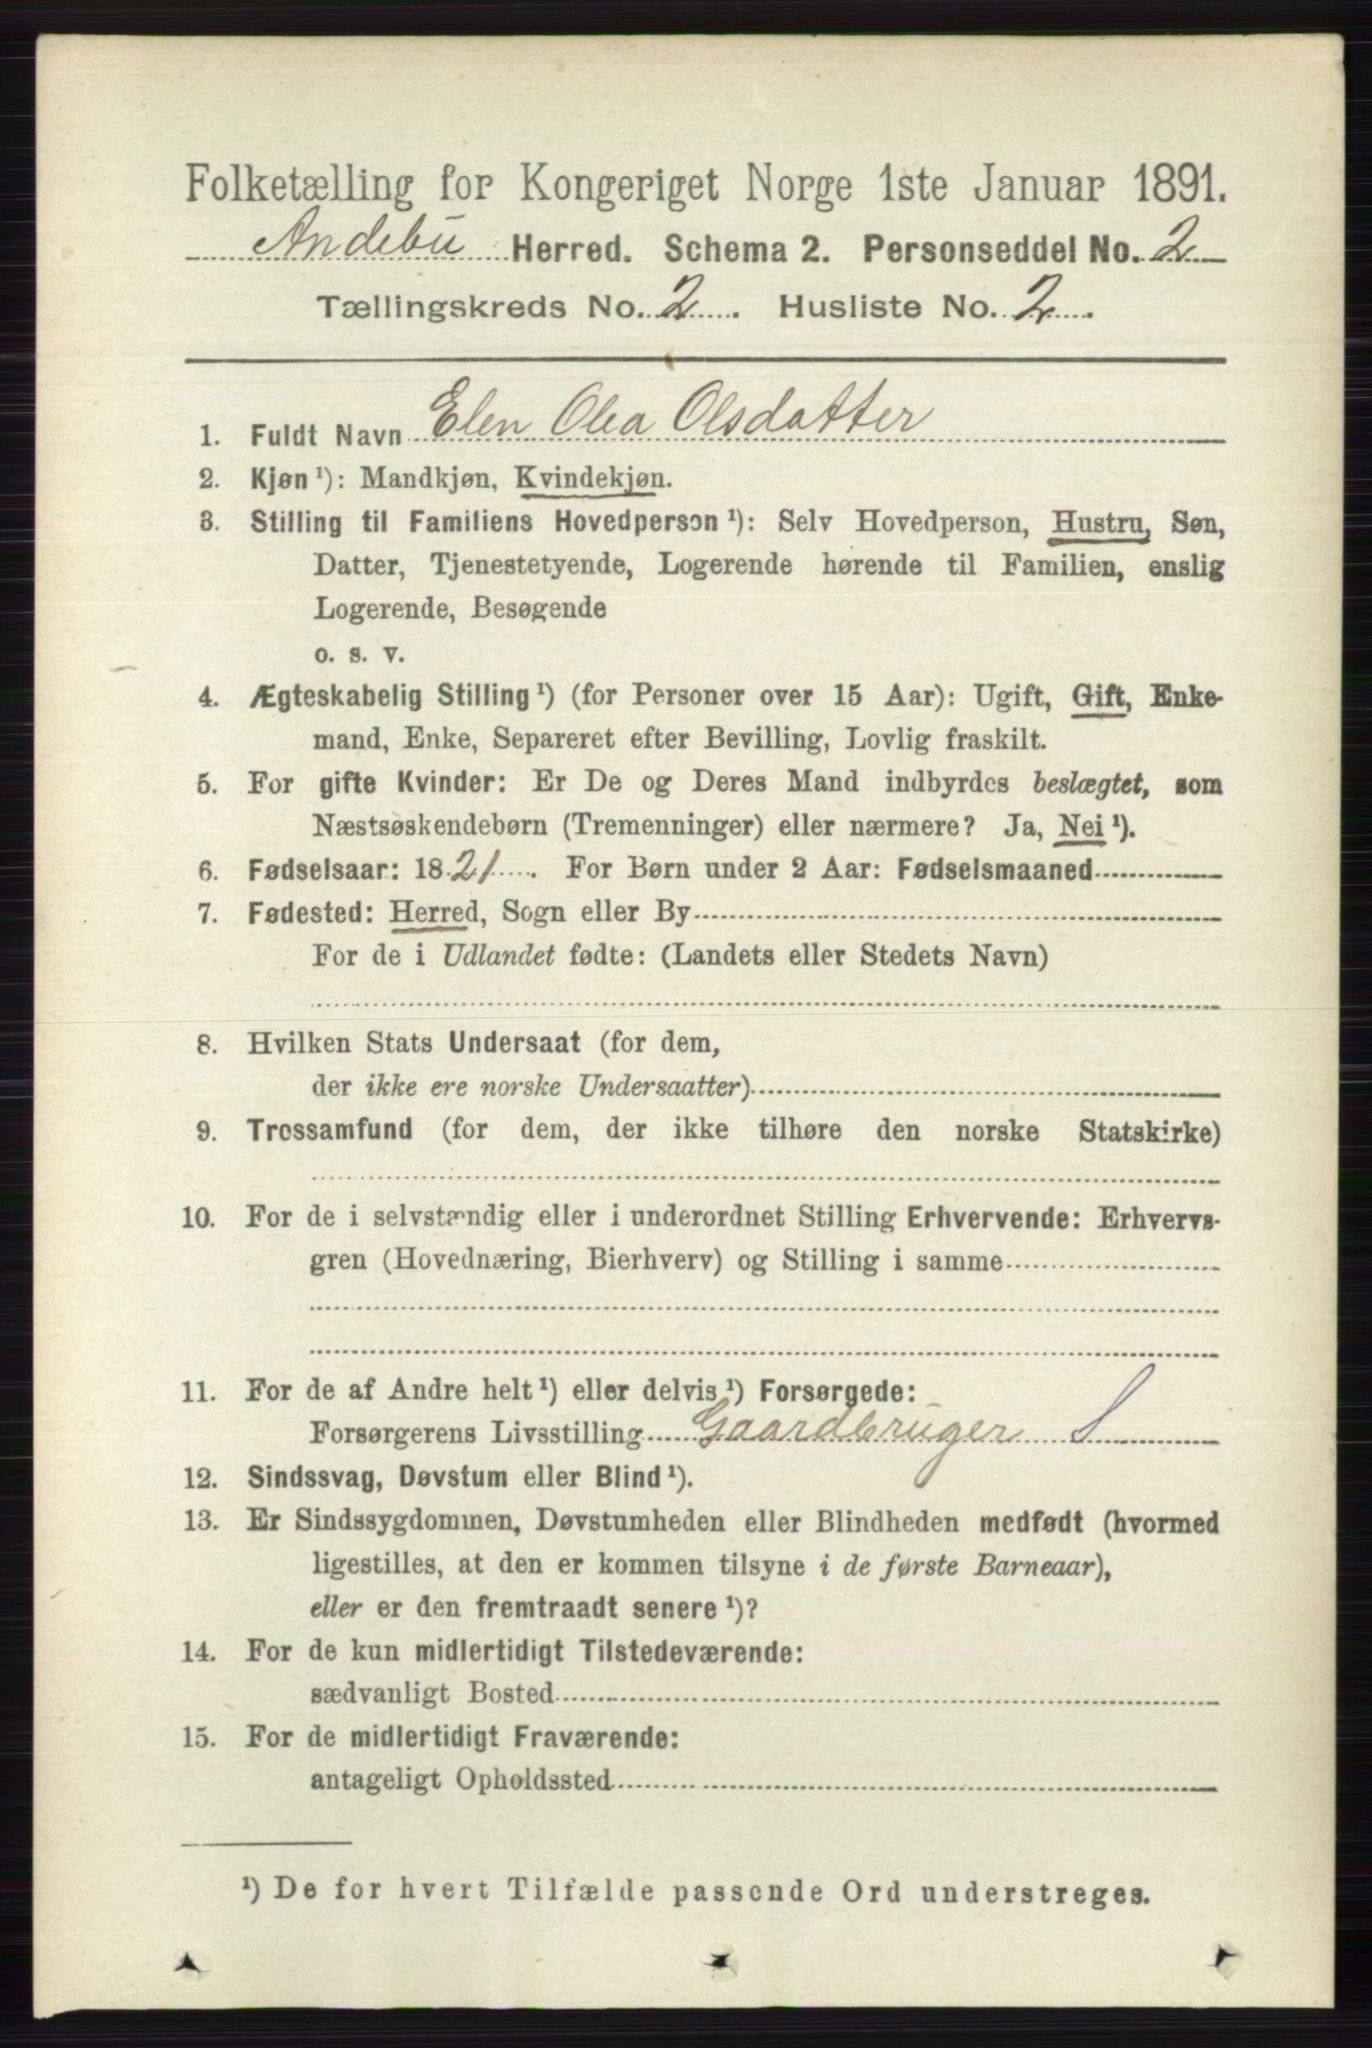 Folketælling for Kongeriget Norge 1ste Januar 1891.
Andebu Herred. Schema 2. Personseddel No. 2
Tællingskreds No. 2. Husliste No. 2.
1. Fuldt Navn Elen Olea Olsdatter
2. Kjøn¹): Mandkjøn, Kvindekjøn.
3. Stilling til Familiens Hovedperson¹): Selv Hovedperson, Hustru, Søn,
Datter, Tjenestetyende, Logerende hørende til Familien, enslig
Logerende, Besøgende
o. s. v.
4. Ægteskabelig Stilling¹) (for Personer over 15 Aar): Ugift, Gift, Enke-
mand, Enke, Separeret efter Bevilling, Lovlig fraskilt.
5. For gifte Kvinder: Er De og Deres Mand indbyrdes beslægtet, som
Næstsøskendebørn (Tremenninger) eller nærmere? Ja, Nei¹).
6. Fødselsaar: 1821. For Børn under 2 Aar: Fødselsmaaned
7. Fødested: Herred, Sogn eller By
For de i Udlandet fødte: (Landets eller Stedets Navn)
8. Hvilken Stats Undersaat (for dem,
der ikke ere norske Undersaatter)
9. Trossamfund (for dem, der ikke tilhøre den norske Statskirke)
10. For de i selvstændig eller i underordnet Stilling Erhvervende: Erhvervs-
gren (Hovednæring, Bierhverv) og Stilling i samme
11. For de af Andre helt¹) eller delvis¹) Forsørgede:
Forsørgerens Livsstilling Gaardbruger S
12. Sindssvag, Døvstum eller Blind¹).
13. Er Sindssygdommen, Døvstumheden eller Blindheden medfødt (hvormed
ligestilles, at den er kommen tilsyne i de første Barneaar),
eller er den fremtraadt senere¹)?
14. For de kun midlertidigt Tilstedeværende:
sædvanligt Bosted
15. For de midlertidigt Fraværende:
antageligt Opholdssted
¹) De for hvert Tilfælde passende Ord understreges.